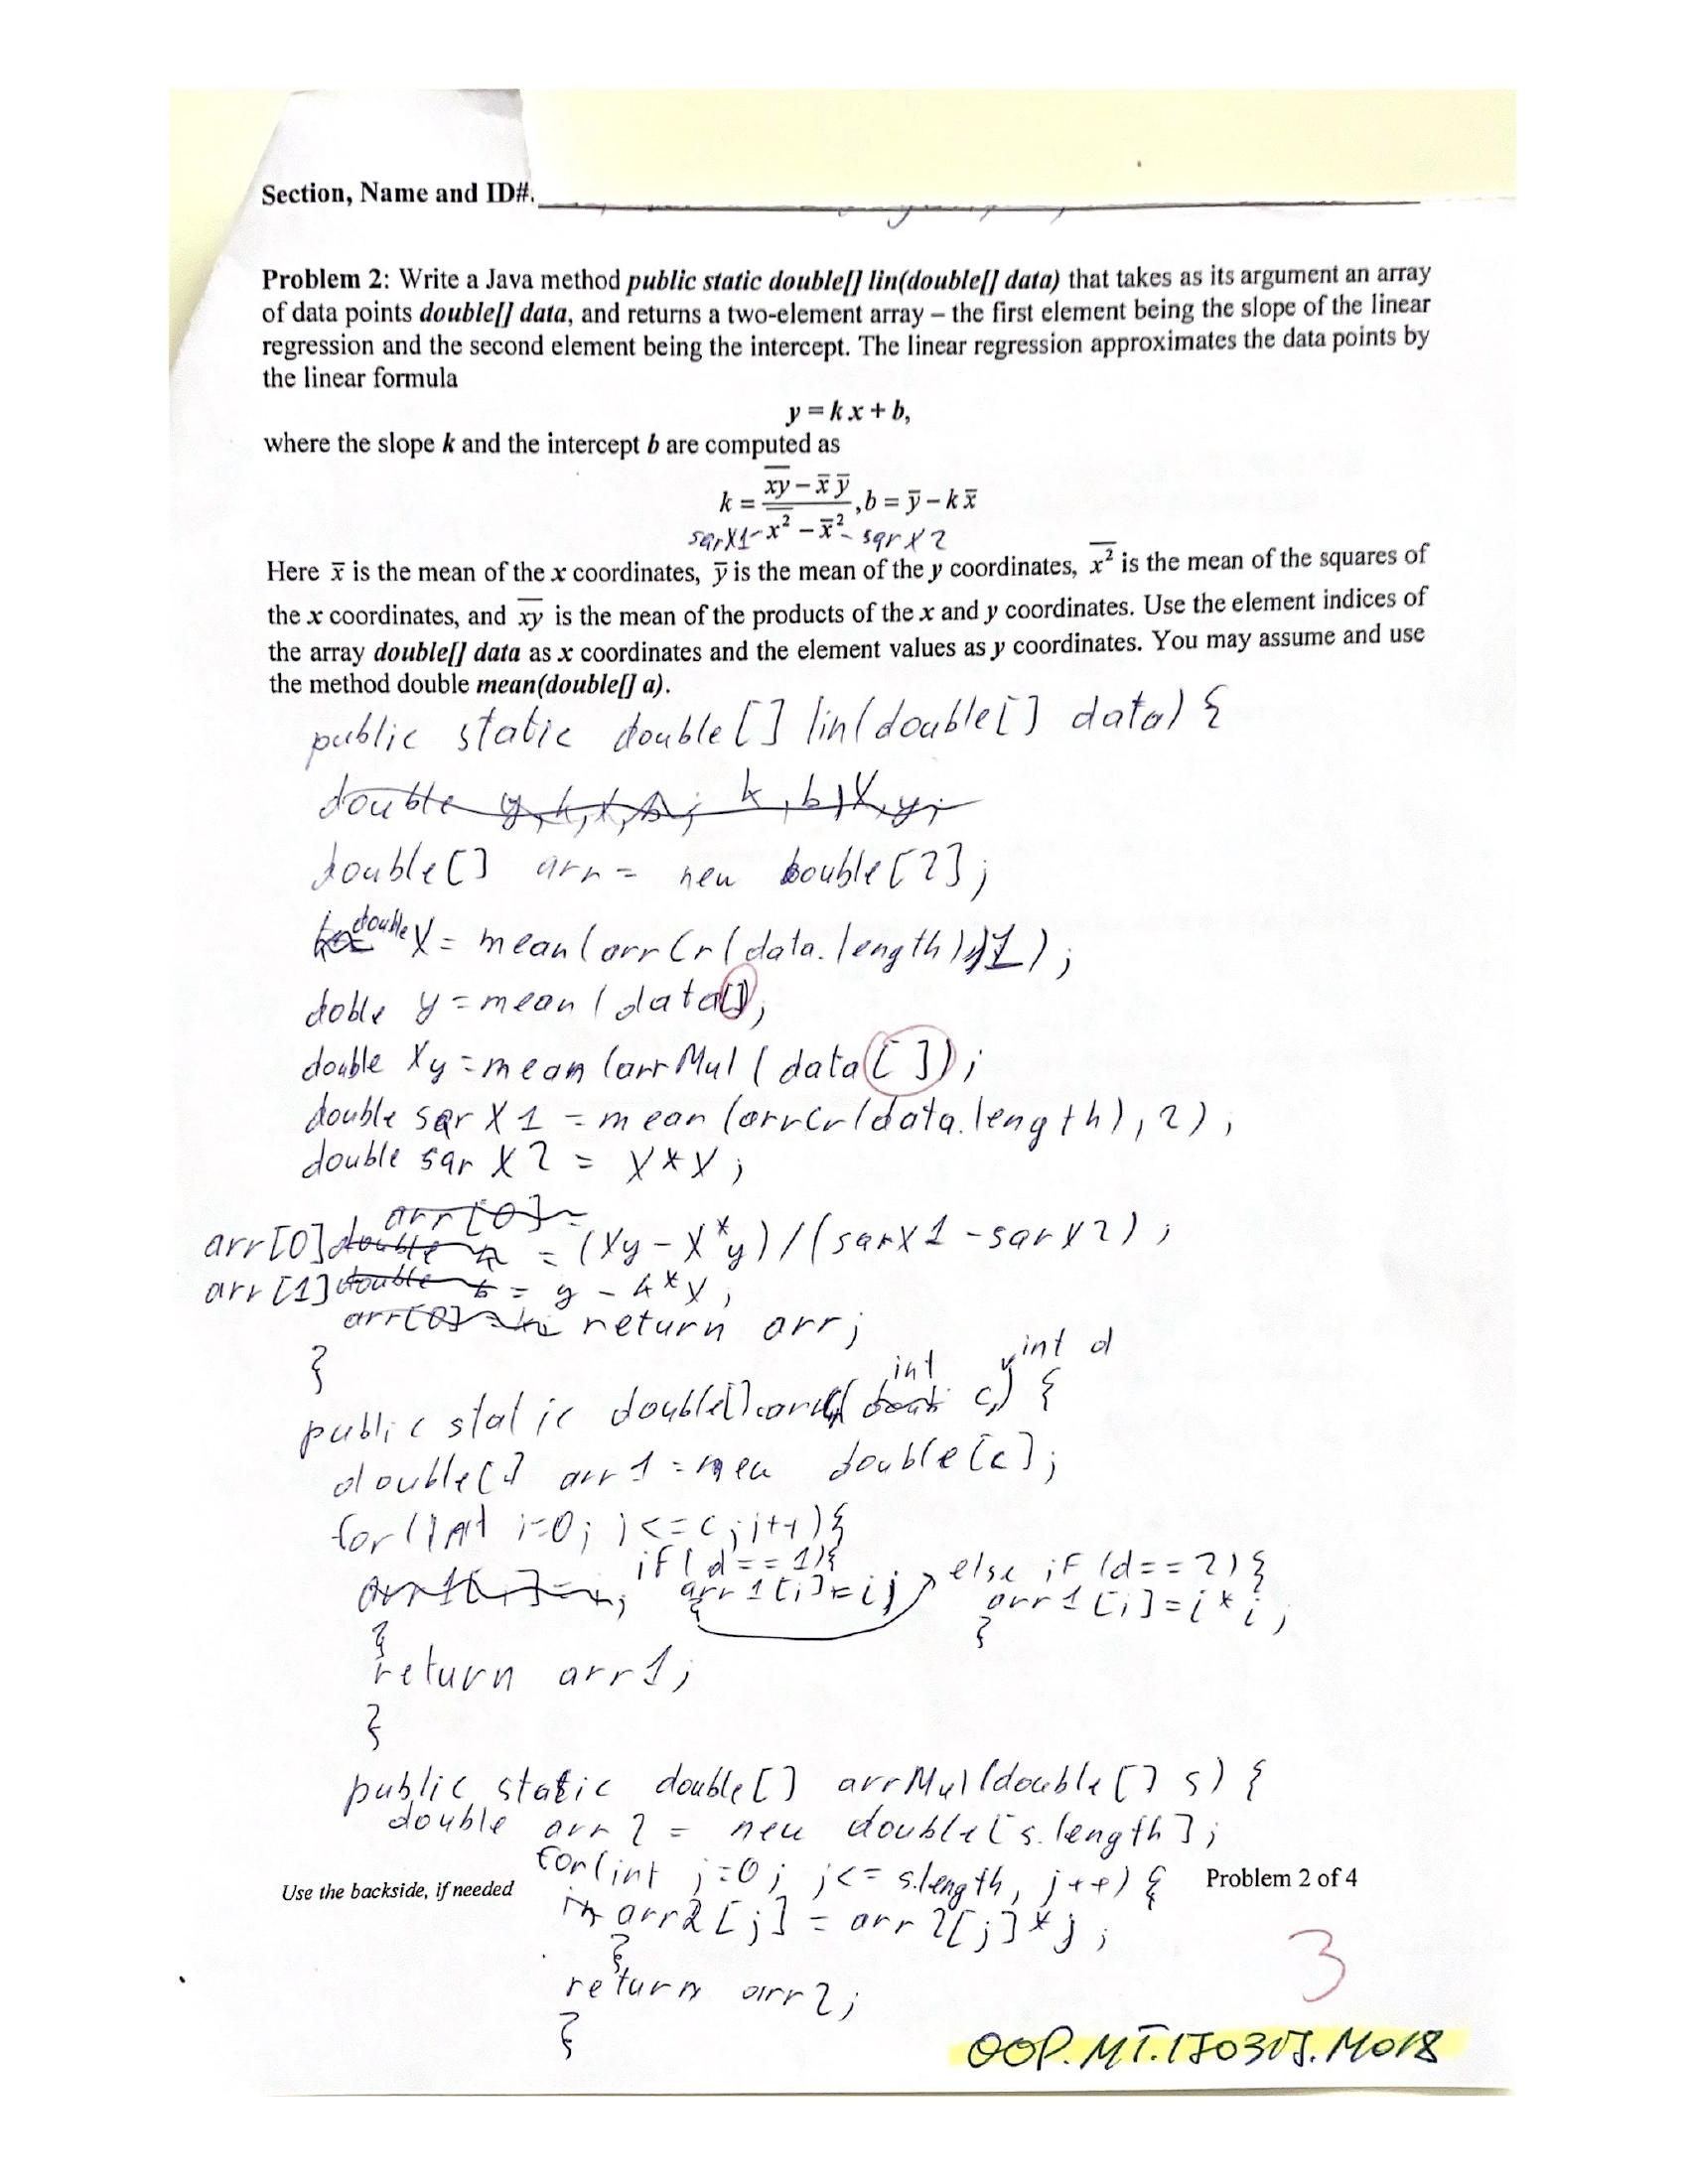 Section, Name and ID#.
Problem 2: Write a Java method public static double[] lin(double[] data) that takes as its argument an array
of data points double[] data, and returns a two-element array – the first element being the slope of the linear
regression and the second element being the intercept. The linear regression approximates the data points by
the linear formula
y = k x + b,
where the slope k and the intercept b are computed as
k = (x̅y̅ – x̄ ȳ) / (x̅²̅ – x̄²), b = ȳ – k x̄
sqrX1 - sqrX2
Here x̄ is the mean of the x coordinates, ȳ is the mean of the y coordinates, x̅²̅ is the mean of the squares of
the x coordinates, and x̅y̅ is the mean of the products of the x and y coordinates. Use the element indices of
the array double[] data as x coordinates and the element values as y coordinates. You may assume and use
the method double mean(double[] a).
public static double[] lin(double[] data) {
double k, b, X, y;
double[] arr = new double[2];
double X = mean(arrCr(data.length),1);
doble y = mean(data[]);
double Xy = mean(arrMul(data[]);
double sqrX1 = mean(arrCr(data.length),2);
double sqrX2 = X*X;
arr[0] =
arr[0] double k = (Xy - X*y)/(sqrX1 - sqrX2);
arr[1] double b = y - k*X;
arr[0] = k; return arr;
}
public static double[] arrCr(int c, int d) {
double[] arr1 = new double[c];
for(int i=0; i<=c; i++){
if(d==1){ else if (d==2){
arr1[i]=i; arr1[i]=i; arr1[i]=i*i;
} }
}
return arr1;
}
public static double[] arrMul(double[] s) {
double arr2 = new double[s.length];
for(int j=0; j<=s.length, j++) {
Use the backside, if needed
Problem 2 of 4
arr2[j] = arr2[j]*j;
}
return arr2;
}
3
OOP.MT.170317.M018